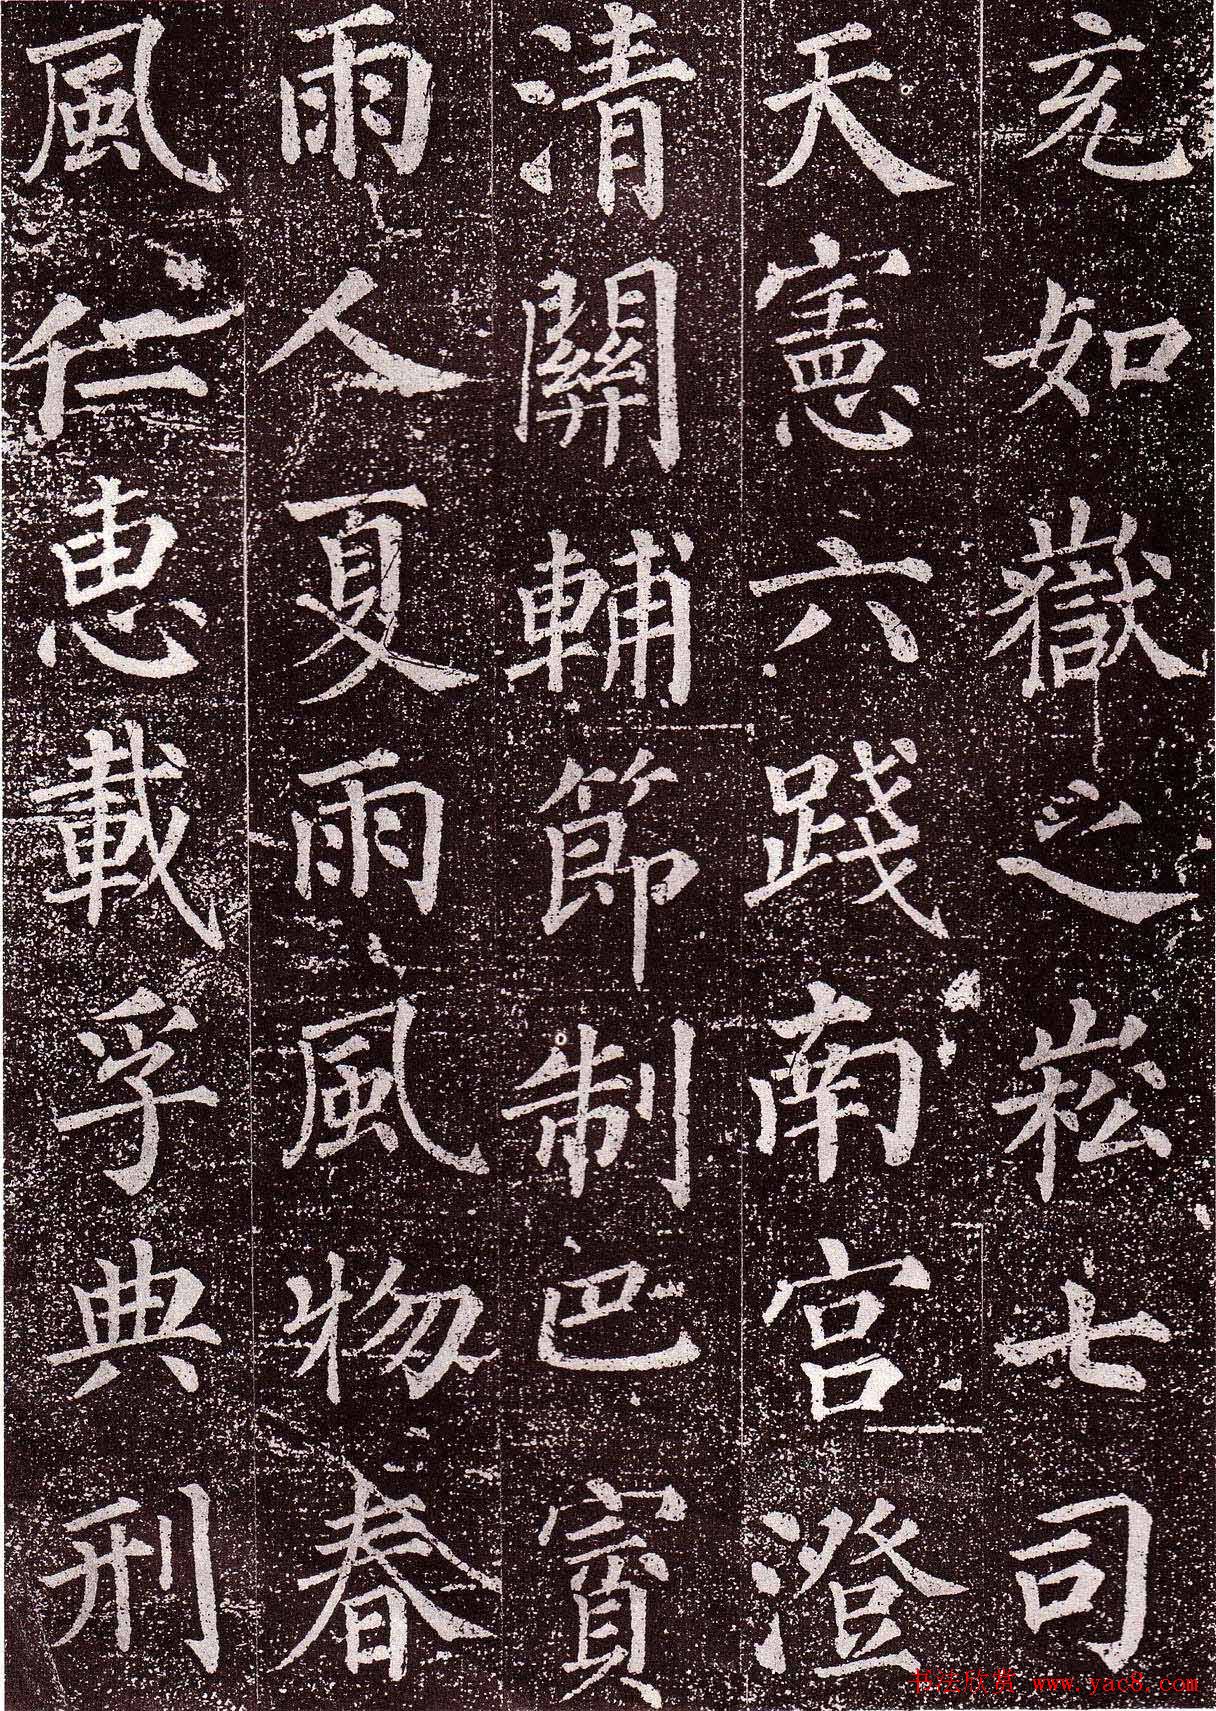 充如嶽之崧七司
天憲六踐南宮澄
清關輔節制巴賓
雨人夏雨風物春
風仁惠載孚典刑
书法欣赏 www.yac8.com